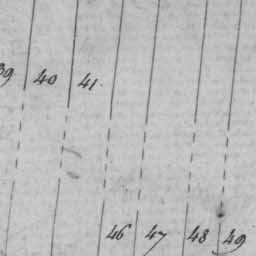 39 40 41.
46 47 48 49